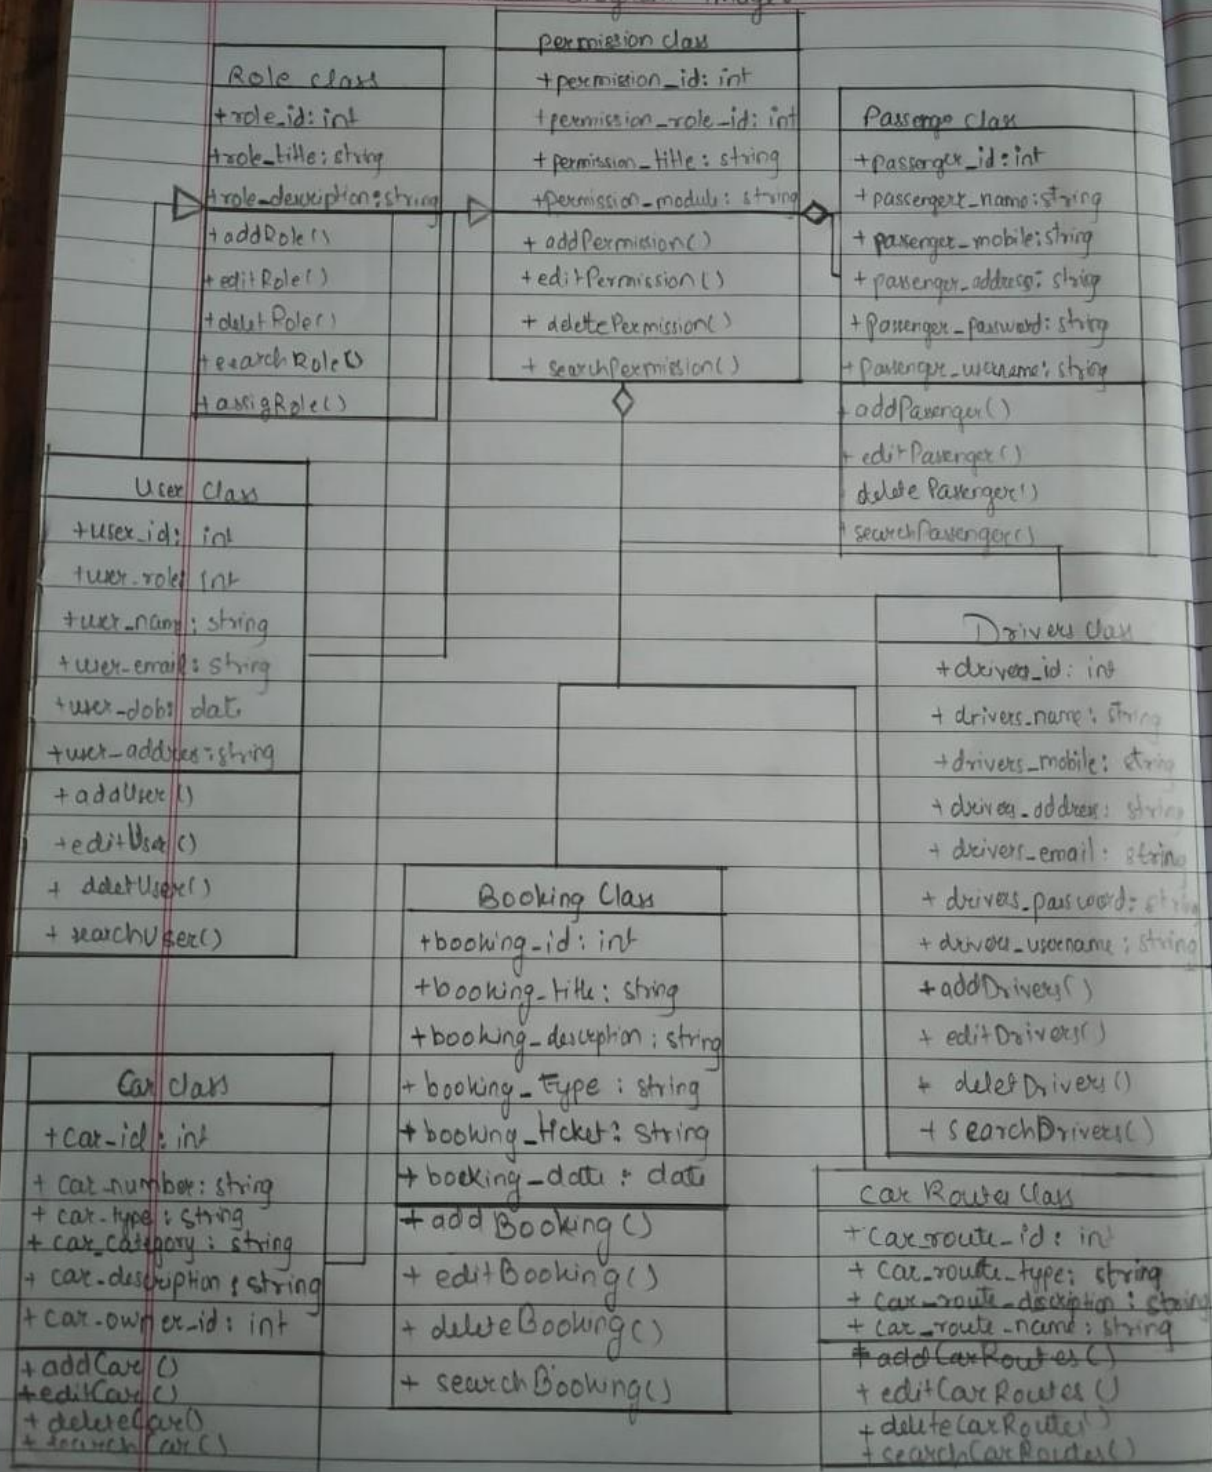 Role class
+role_id: int
+role_title: string
+role_description: string
+addRole()
+editRole()
+deletRole()
+searchRole()
+assigRole()
permission class
+permission_id: int
+permission_role_id: int
+permission_title: string
+permission_module: string
+ addPermission()
+editPermission()
+ deletePermission()
+ searchPermission()
Passenge class
+passenger_id: int
+passengers_name: string
+ passenger_mobile: string
+ passenger_address: string
+ passenger_password: string
+ passenger_username: string
+ addPassenger()
+ editPassenger()
delete Passenger()
+ searchPassenger()
User class
+user_id: int
+user_role: int
+user_name: string
+user_email: string
+user_dob: date
+user_address: string
+ addUser()
+editUser()
+ deletUser()
+ searchUser()
Drivers class
+drivers_id: int
+ drivers_name: string
+drivers_mobile: string
+ drivers_address: string
+ drivers_email: string
+ drivers_password: string
+ drivers_username: string
+ addDrivers()
+ editDrivers()
+ deletDrivers()
+ searchDrivers()
Booking Class
+booking_id: int
+booking_title: string
+booking_description: string
+ booking_type: string
+ booking_ticket: string
+ booking_date: date
+ addBooking()
+ editBooking()
+ deleteBooking()
+ searchBooking()
Car class
+car_id: int
+ car_number: string
+ car_type: string
+ car_category: string
+ car_description: string
+ car_owner_id: int
+addCar()
+editCar()
+ deleteCar()
+ searchCar()
Car Routes Class
+ car_route_id: int
+ car_route_type: string
+ car_route_discription: string
+ car_route_name: string
+ addCarRoutes()
+ editCarRoutes()
+ deleteCarRoutes()
+ searchCarRoutes()